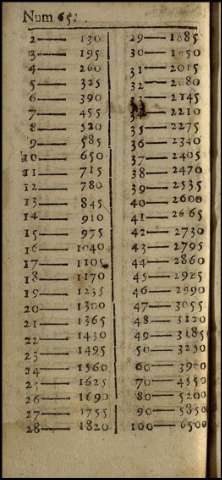 Num 65.
2—130
3—195
4—260
5—325
6—390
7—455
8—520
9—585
10—650
11—715
12—780
13—845
14—910
15—975
16—1040
17—1105
18—1170
19—1235
20—1300
21—1365
22—1430
23—1495
24—1560
25—1625
26—1690
27—1755
28—1820
29—1885
30—1950
31—2015
32—2080
33—2145
34—2210
35—2275
36—2340
37—2405
38—2470
39—2535
40—2600
41—2665
42—2730
43—2795
44—2860
45—2925
46—2990
47—3055
48—3120
49—3185
50—3250
60—3900
70—4550
80—5200
90—5850
100—6500